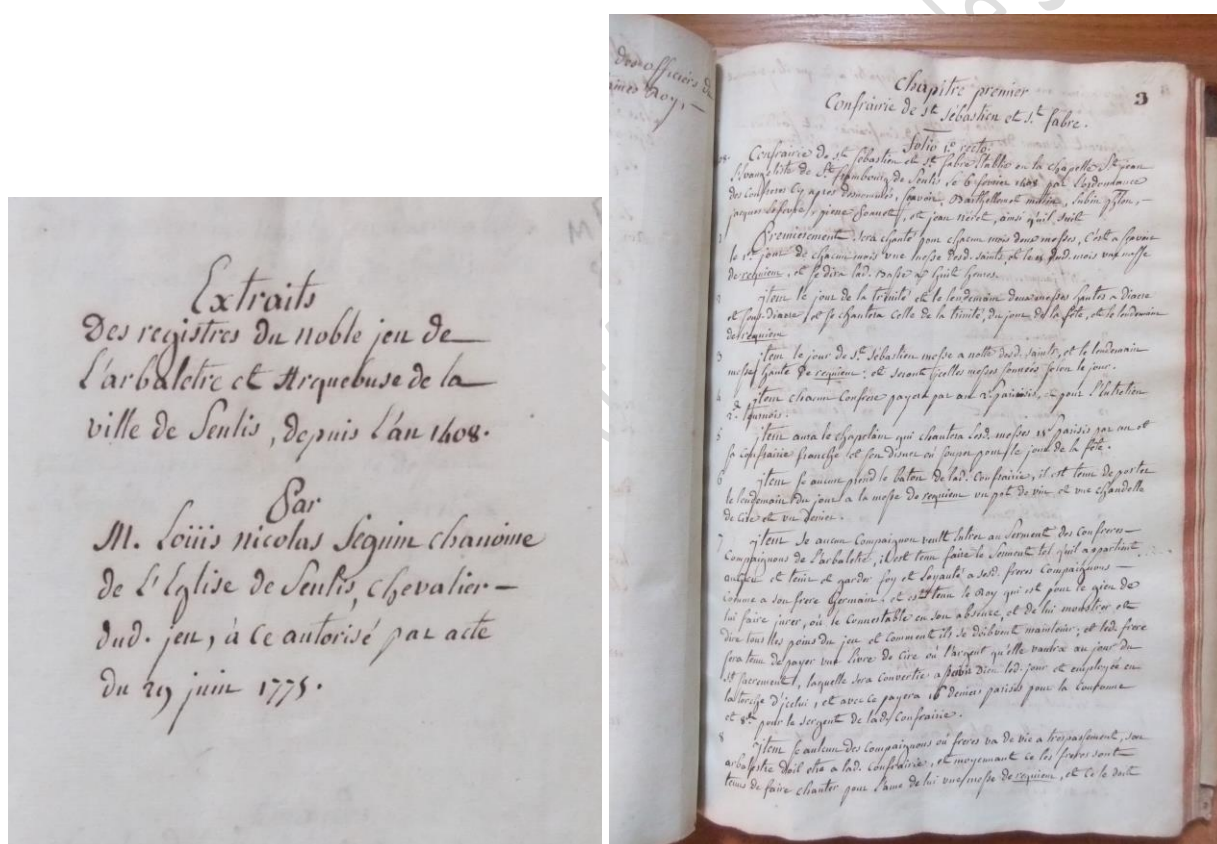 Extraits
Des registres du noble jeu de
L'arbaletre et Arquebuse de la
ville de Senlis, depuis l'an 1408.
Par
M. Loüis nicolas Seguin chanoine
de L'Eglise de Senlis, chevalier
dud. jeu, à ce autorisé par acte
du 29 juin 1775.
des officiers de
Roy,
3
chapitre premier
Confrairie de st Sébastien et s.t fabre.
folio 1.er recto.
Confrairie de st Sébastien et st fabre Etablie en la chapelle St jean
Evangeliste de St frambourg de Senlis le 6 fevrier 1408 par l'ordonnance
des Confreres cy apres denommés, scavoir, Barthellemot mattin, Subin
jacques Lefevre, et jean neret, ainsi qu'il suit
1 Premierement sera chanté pour chacun mois deux messes, c'est a scavoir
le 1.er jour de chacun mois une messe desd. saints, et le dud. mois une messe
de requiem, et se dira lad. messe a huit heures.
2 jtem le jour de la trinité et le lendemain deux messes hautes a diacre
et sous-diacre, et se chantera celle de la trinité, du jour de la fête, et le lendemain
de requiem
3 jtem le jour de st. Sébastien messe a notte desd. saints, et le lendemain
messe hante de requiem; et seront jcelles messes sonnées selon le jour.
4 jtem chacun Confrere payera par an parisis, pour l'Entretien
2.d tournois.
5 jtem aura le chapelain qui chantera lesd. messes 18 s parisis par an et
sa confrairie franche et son disner ou souper pour le jour de la fête.
6 jtem se aucun prend le baton de lad. Confrairie, il est tenu de porter
le lendemain du jour a la messe de requiem un pot de vin, et une chandelle
de cire et un denier.
7 jtem se aucun Compaignon veult entrer au Serment des Confreres
Compaignons de l'arbaletre, il est tenu faire le Serment tel qu'il appartient
et tenir et garder foy et Loyauté a sesd. freres Compaignons
comme a son frere Germain, et est tenu le Roy qui est pour le gieu de
lui faire jurer, ou le Connestable en son absence, et de lui monstrer et
dire tous les poins du jeu et comment ils se doibvent maintenir, et led. frere
sera tenu de payer une livre de cire ou l'argent qu'elle vaudra au jour du
st Sacrement, laquelle sera convertie a servir Dieu led. jour et employée en
la torche d'jcelui, et avec ce payera 16 deniers parisis pour la Couronne
et 8d. pour le sergent de lad. Confrairie.
8 jtem se aulcun des Compaignons ou freres va de vie a trespassement, son
arbalestre doit etre a lad. Confrairie, et moyennant ce les freres sont
tenus de faire chanter pour l'ame de lui une messe de requiem, et ce le doit